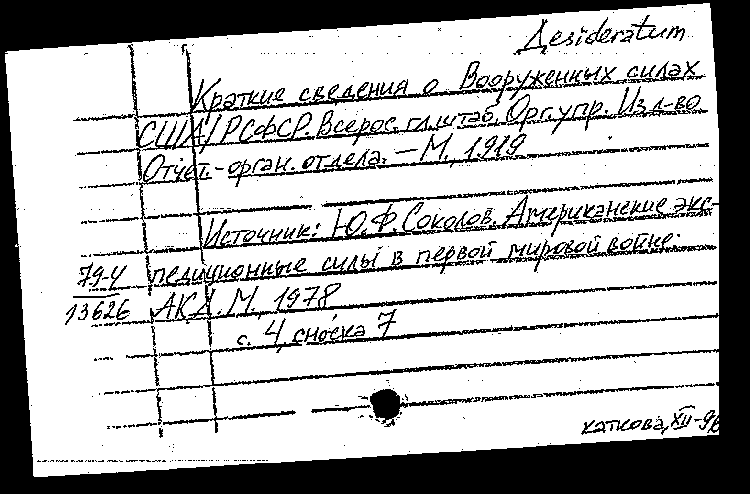 Desideratum
Краткие сведения о Вооруженных силах
США/РСФСР. Всерос. гл. штаб. Орг. упр. Изд-во
Отчет.-орган. отдела. — М., 1919
Источник: Ю.Ф. Соколов. Американские экс-
79-4 педиционные силы в первой мировой войне.
13626 АКД. М., 1978
с. 4, сноска 7
каткова, XII-96